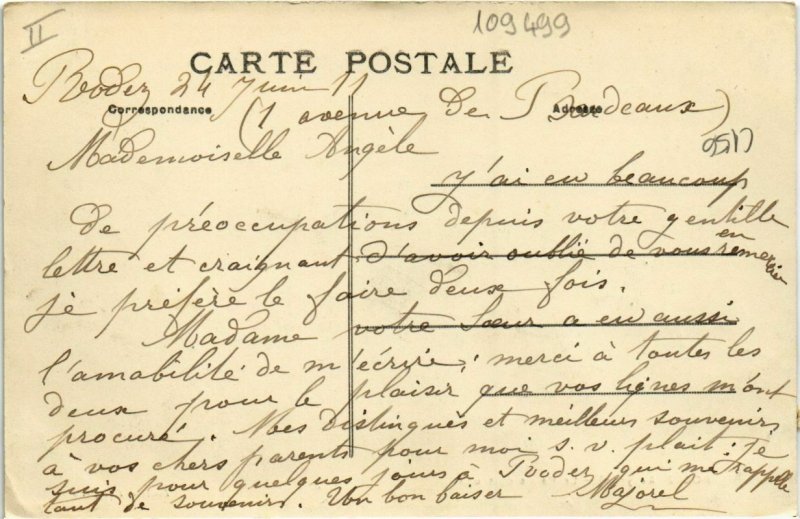 II
109499
CARTE POSTALE
Rodez 24 Juin 11
Correspondance
Adresse
(7 avenue de Bordeaux)
Mademoiselle Angèle
J'ai eu beaucoup
de préoccupations depuis votre gentille
lettre et craignant d'avoir oublié de vous en remercier
je préfère le faire deux fois.
Madame votre Sœur a eu aussi
l'amabilité de m'écrire; merci à toutes les
deux pour le plaisir que vos lignes m'ont
procuré. Mes distingués et meilleurs souvenirs
à vos chers parents pour moi s. v. plait; je
suis pour quelques jours à Rodez, qui me rappelle
tant de souvenirs. Un bon baiser Majorel